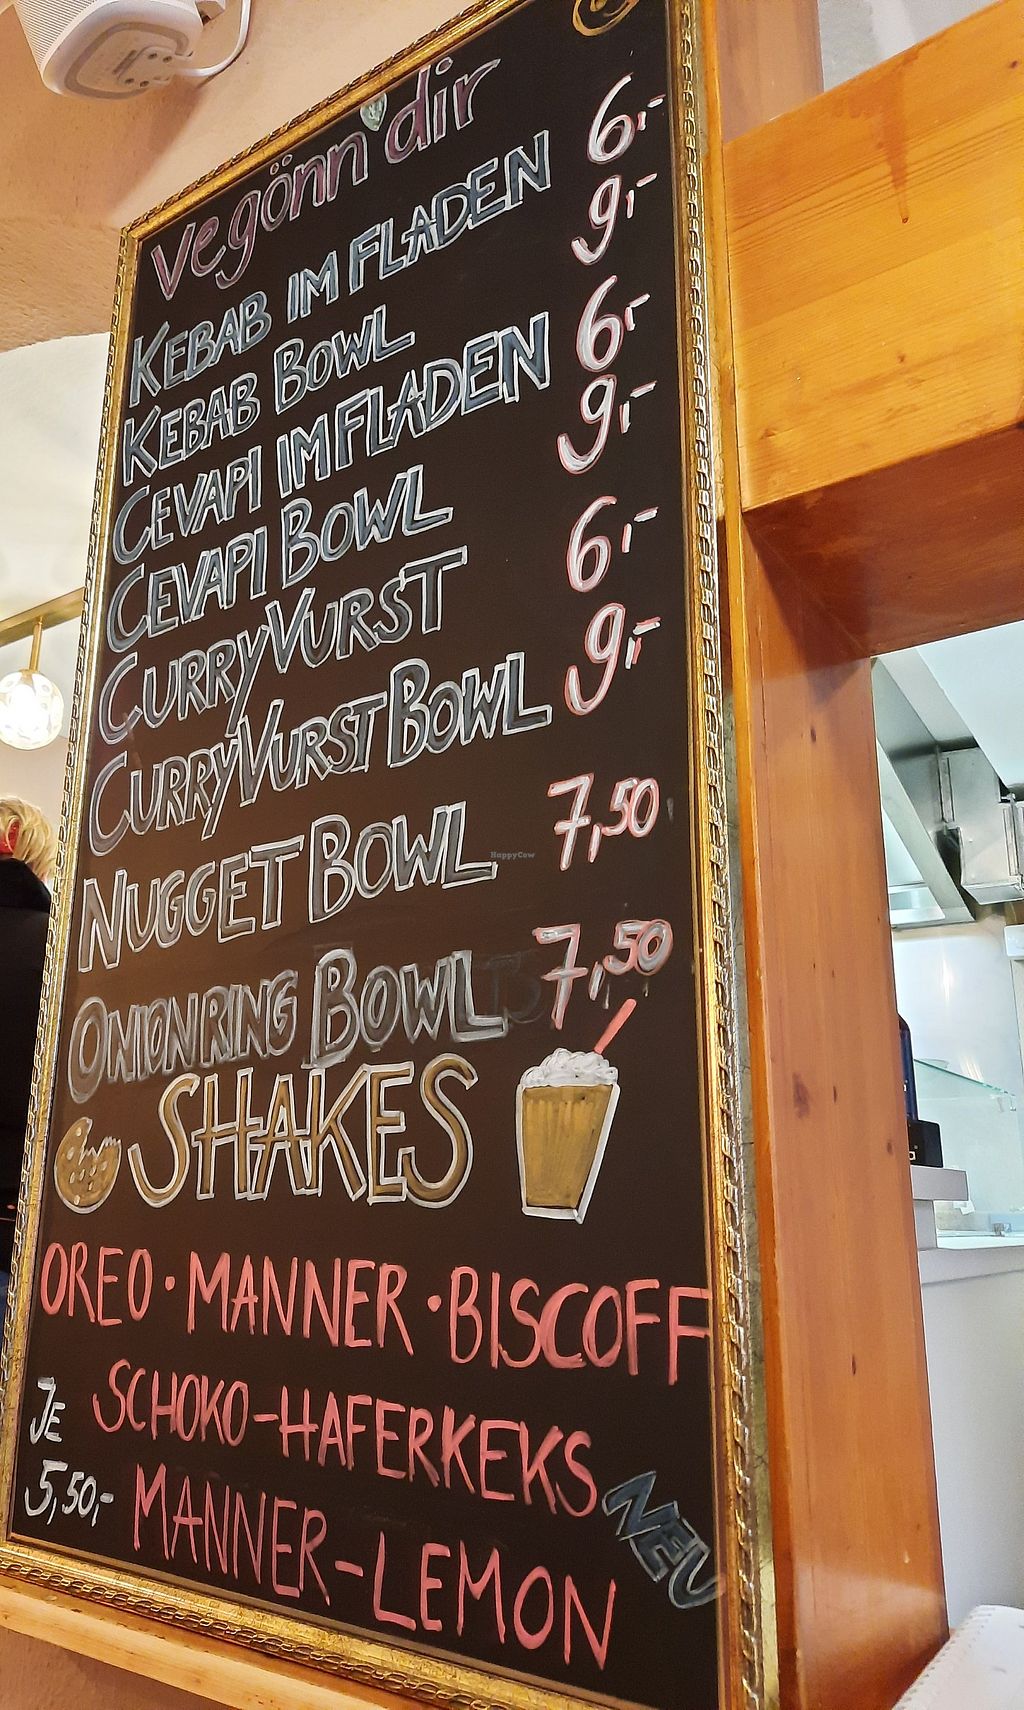 vegönn dir
KEBAB IM FLADEN 6,-
KEBAB BOWL 9,-
CEVAPI IM FLADEN 6,-
CEVAPI BOWL 9,-
CURRYVURST 6,-
CURRYVURST BOWL 9,-
NUGGET BOWL 7,50
ONIONRING BOWL 7,50
SHAKES
OREO · MANNER · BISCOFF
SCHOKO-HAFERKEKS
JE 5,50,-
MANNER-LEMON
NEU
HappyCow